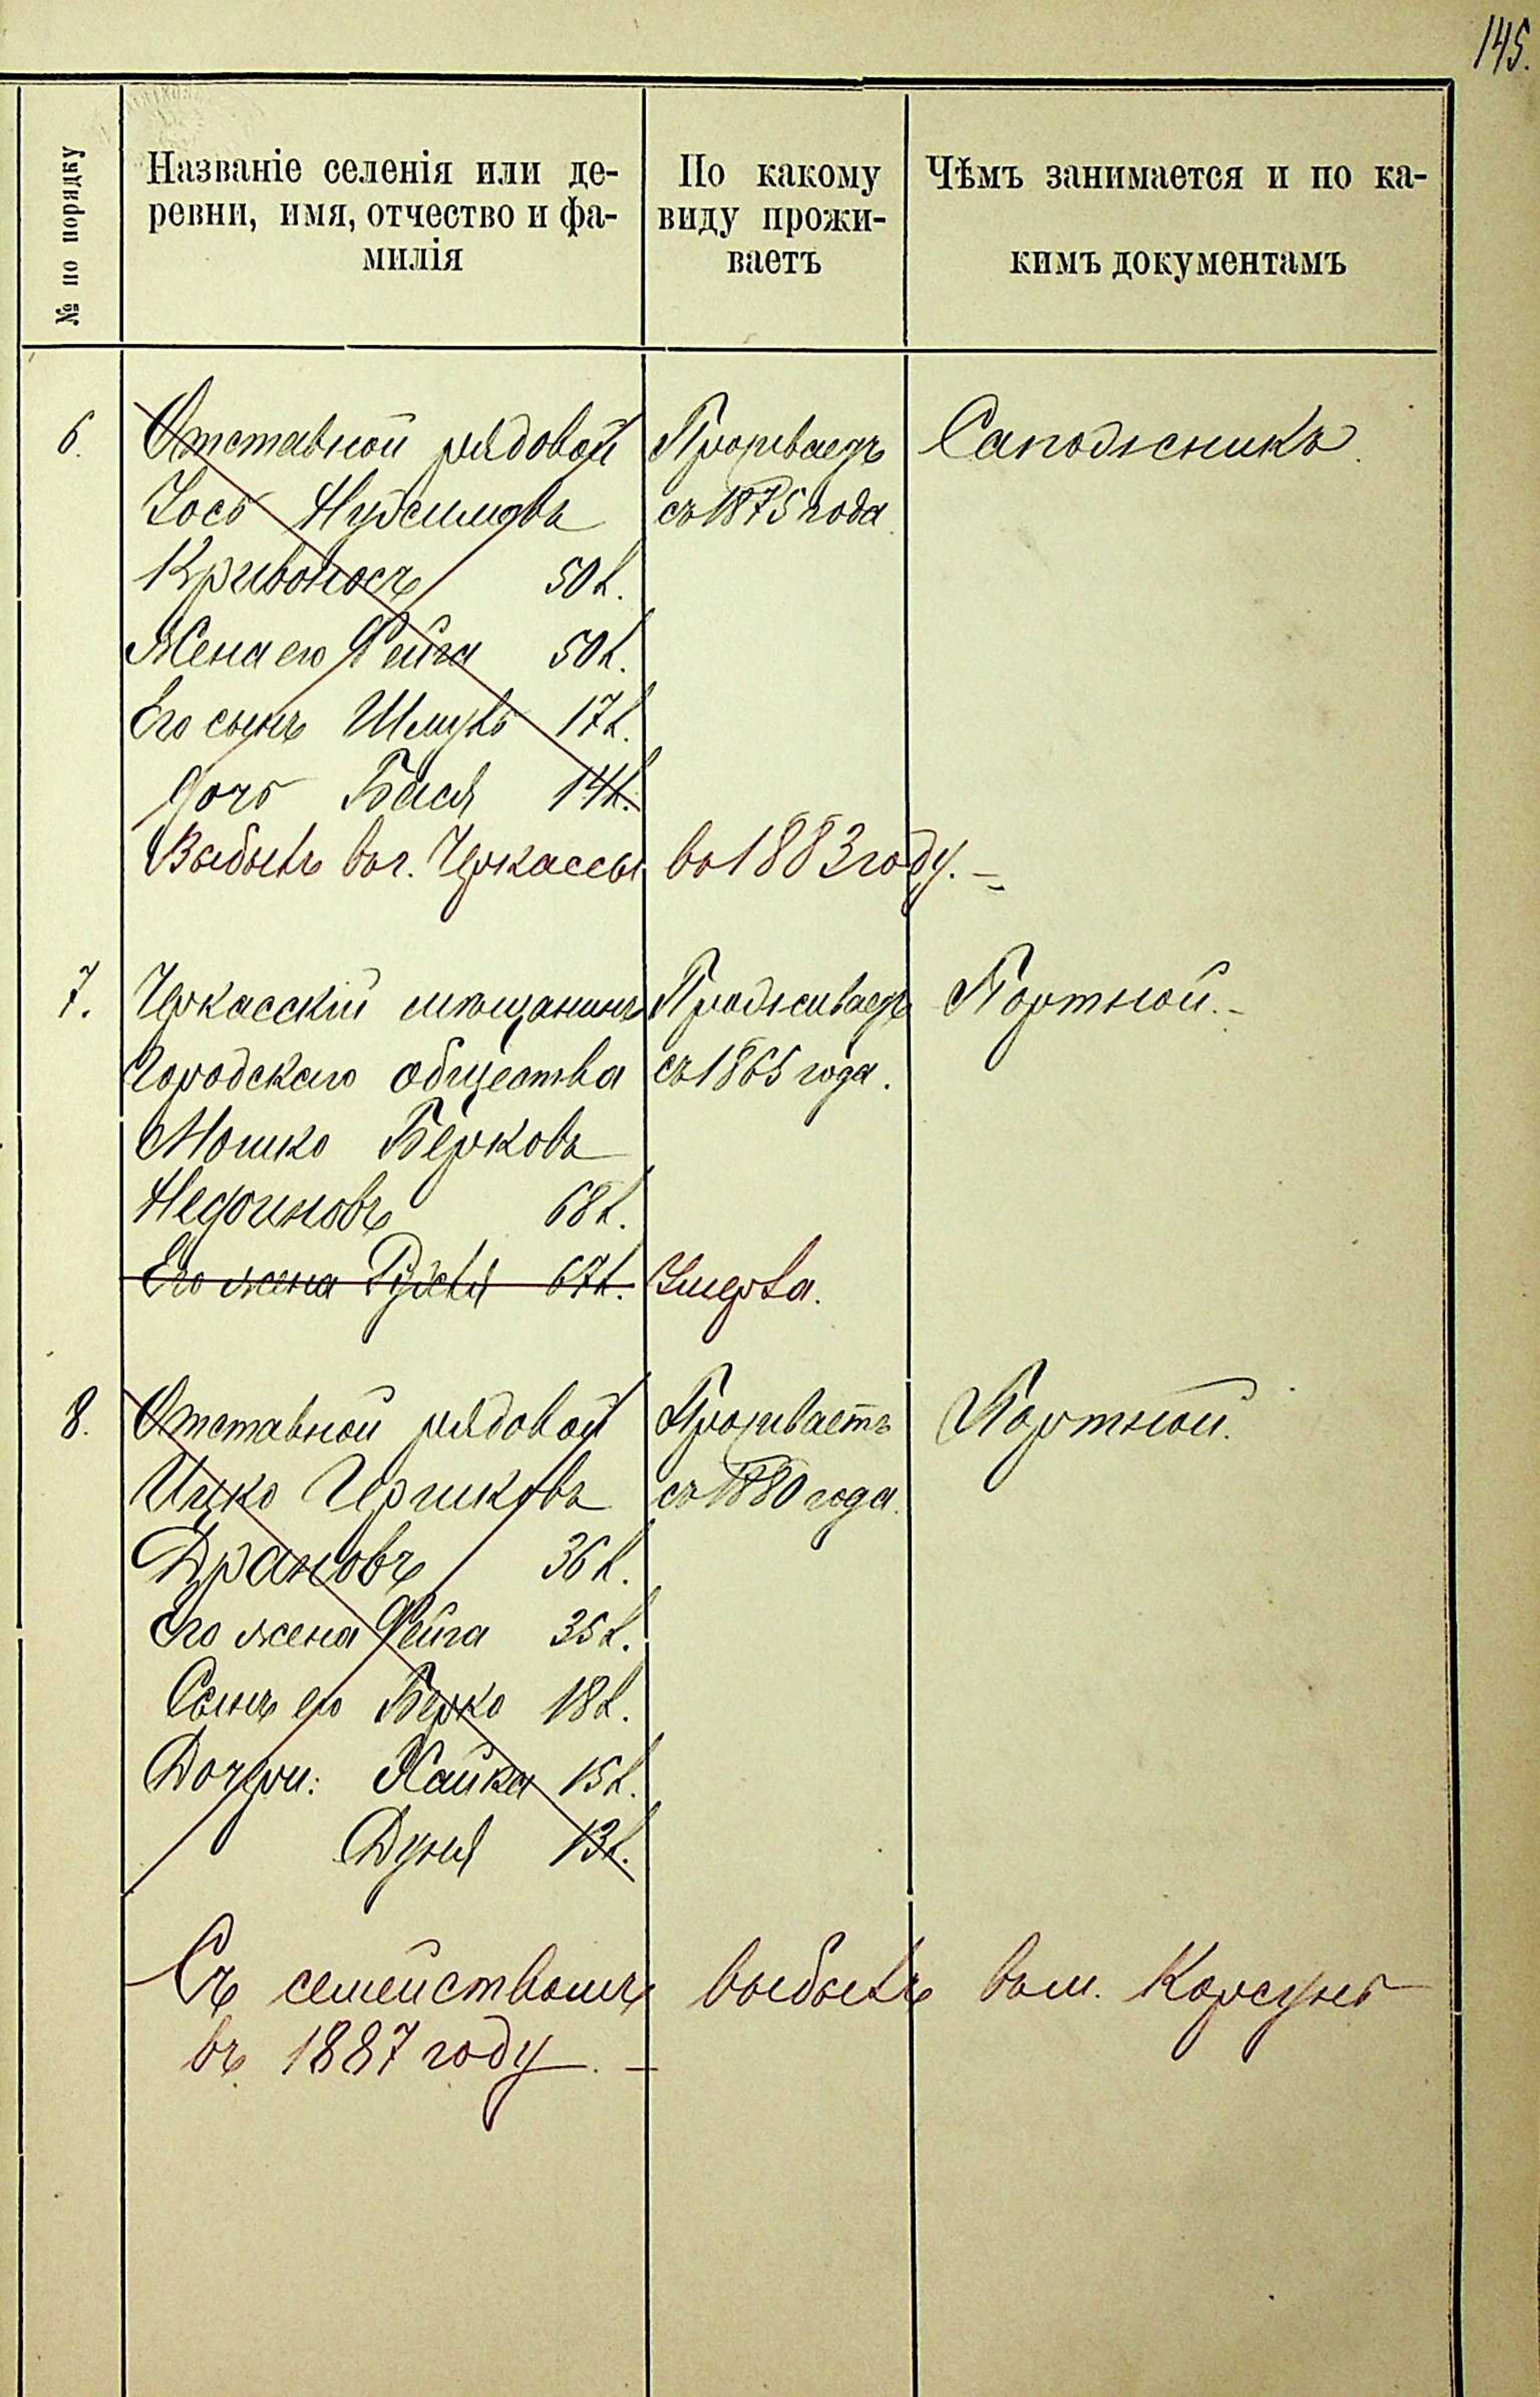 145.
№ по порядку
Названіе селенія или де-
ревни, имя, отчество и фа-
милія
По какому
виду прожи-
ваетъ
Чѣмъ занимается и по ка-
кимъ документамъ
6.
Отставной рядовой
Іось
Кривоносъ 50 л.
Жена его Фейга 50 л.
Его сынъ Шмуль 17 л.
Дочь Бася 14 л.
Проживаетъ
съ 1875 года
Сапожникъ.
Выбылъ въ г. Черкассы въ 1883 году. –
7.
Черкасскій мѣщанинъ
Городского общества
Мошко Берковъ
68 л.
Его жена 67 л.
Проживаетъ
съ 1865 года.
Умерла.
Портной. –
8.
Отставной рядовой
Ицко Гершковъ
Драновъ 36 л.
Его жена Фейга 35 л.
Сынъ его Берко 18 л.
Дочери: Хайка 15 л.
Дуня 13 л.
Проживаетъ
съ 1880 года.
Портной.
Съ семействомъ выбылъ въ м. Корсунь
въ 1887 году. –